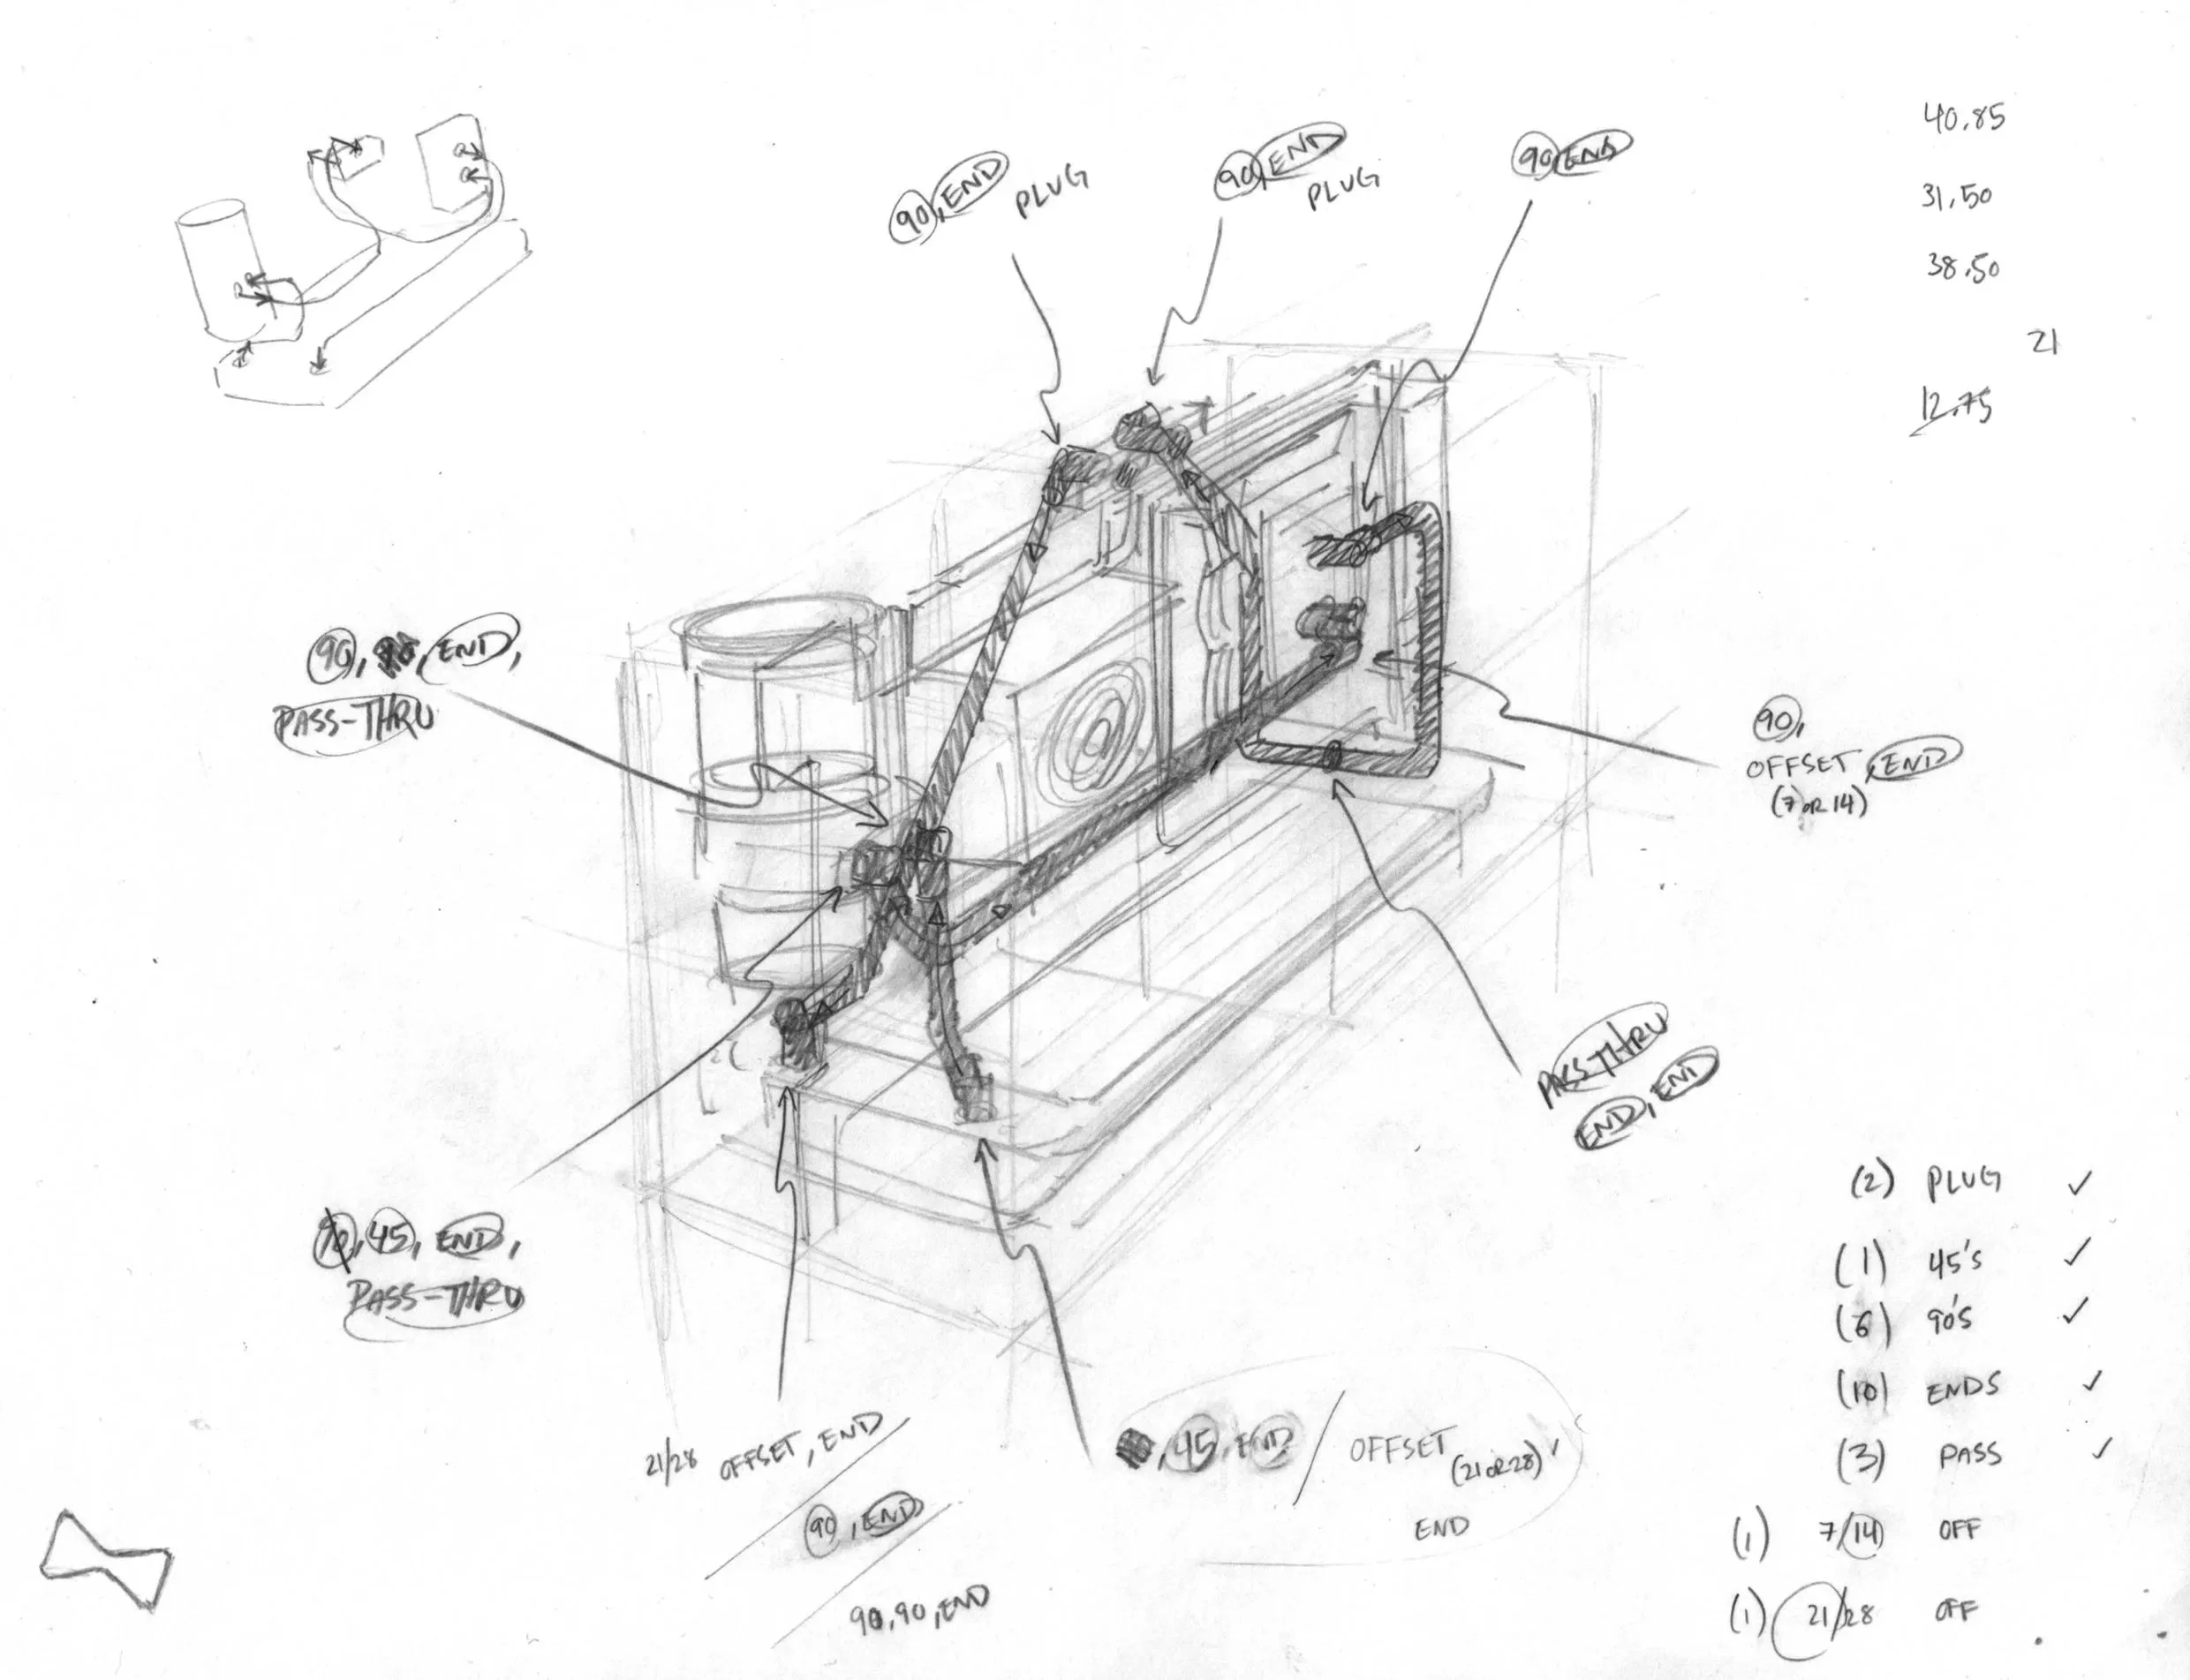 40.85
31.50
38.50
21
12.75
90, END PLUG
90, END
PLUG
90 END
90, END,
PASS-THRU
90,
OFFSET, END
(7 OR 14)
PASS-THRU
END, END
45, END,
PASS-THRU
21/28 OFFSET, END
90, END
90, 90, END
, 45, END / OFFSET
(21 OR 28)
END
(2) PLUG ✓
(1) 45's ✓
(6) 90's ✓
(10) ENDS ✓
(3) PASS ✓
(1) 7/14 OFF
(1) 21/28 OFF